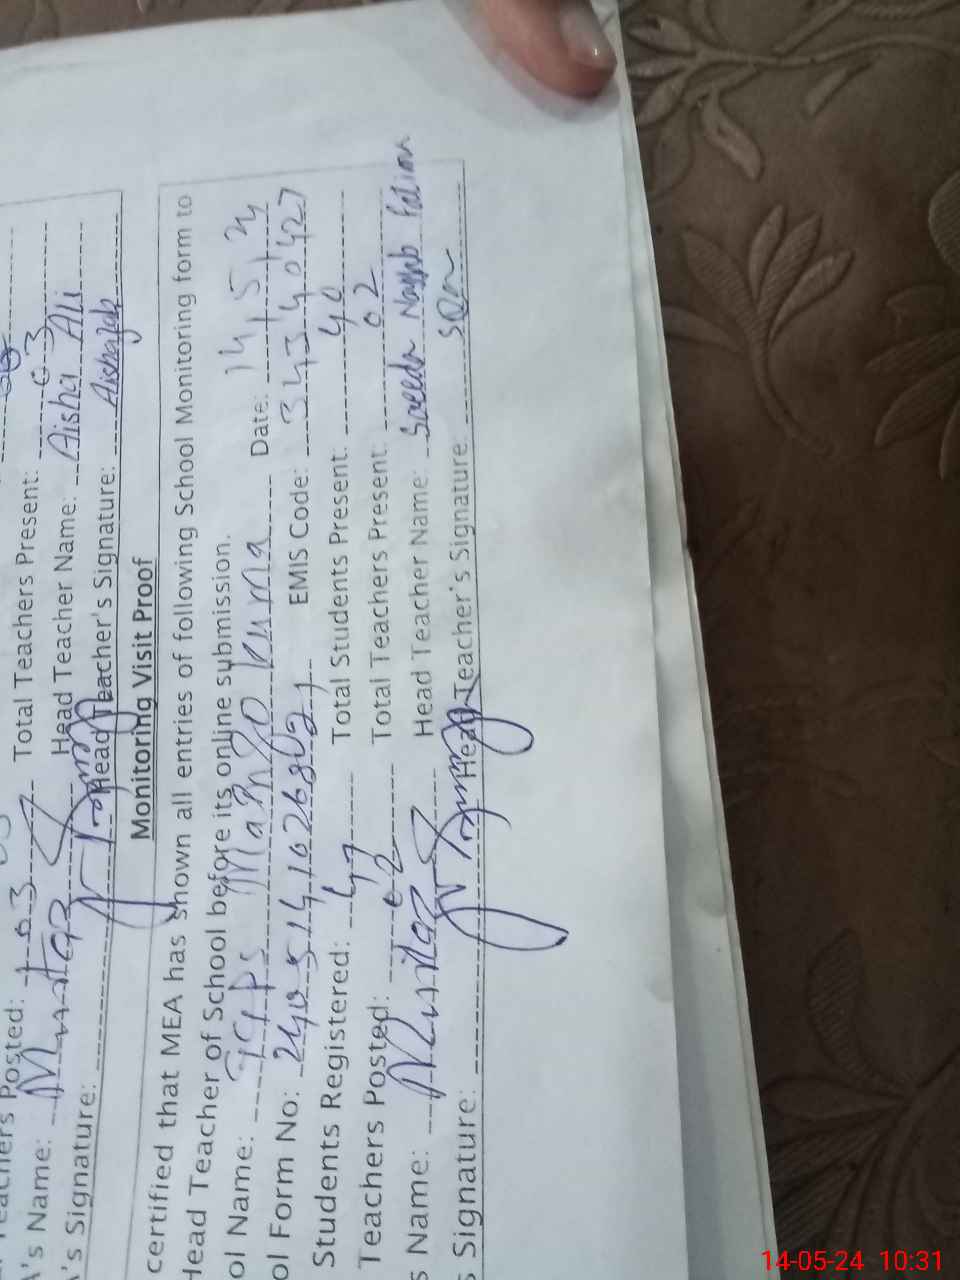 Teachers Posted: 03 Total Teachers Present: 03
A's Name: Mumtaz Head Teacher Name: Aisha Ali
A's Signature: Head Teacher's Signature:
Monitoring Visit Proof
certified that MEA has shown all entries of following School Monitoring form to
Head Teacher of School before its online submission.
ol Name: GPS Date: 14,5,24
ol Form No: EMIS Code: 34340427
Students Registered: 47 Total Students Present: 40
Teachers Posted: 02 Total Teachers Present: 02
s Name: Mumtaz Head Teacher Name: Saeeda Fatima
s Signature: Head Teacher's Signature:
14-05-24 10:31